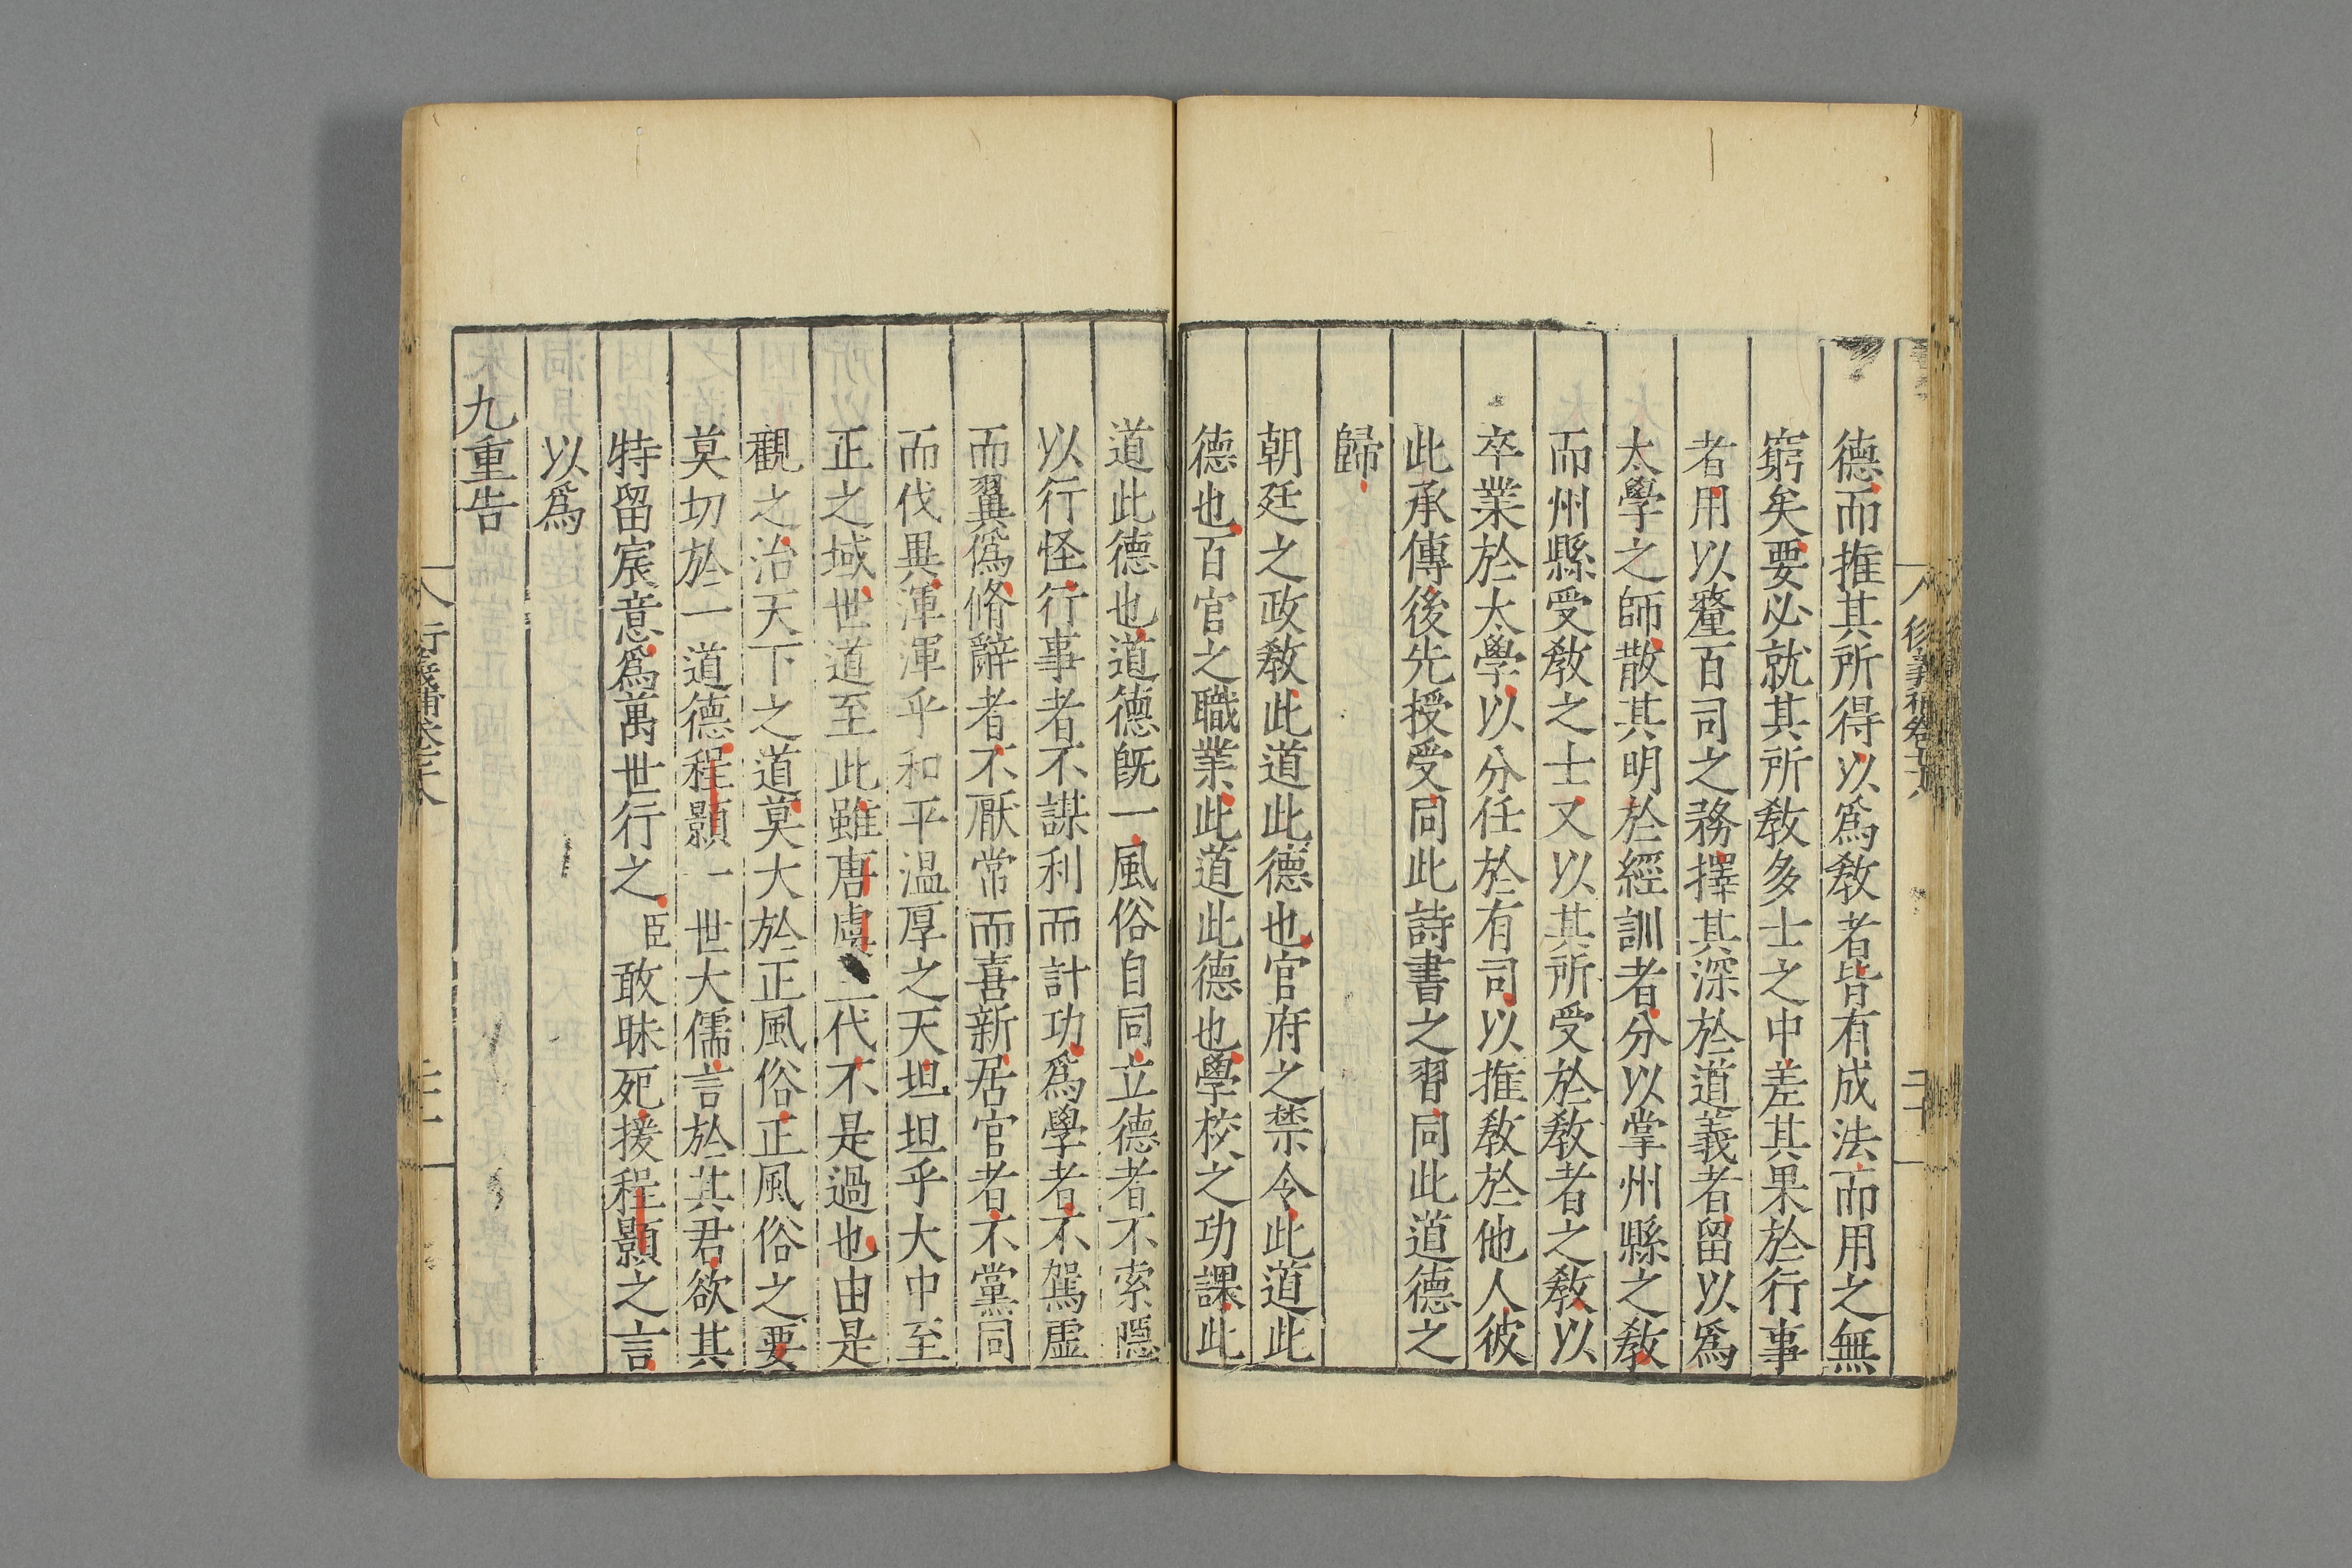 德而推其所得以爲教者皆有成法而用之無
窮矣要必就其所教多士之中差其果於行事
者用以釐百司之務擇其深於道義者留以爲
太學之師散其明於經訓者分以掌州縣之教
而州縣受教之士又以其所受於教者之教以
卒業於太學以分任於有司以推教於他人彼
此承傳後先授受同此詩書之習同此道德之
歸
朝廷之政教此道此德也官府之禁令此道此
德也百官之職業此道此德也學校之功課此
道此德也道德旣一風俗自同立德者不索隱
以行怪行事者不謀利而計功爲學者不駕虛
而翼僞脩辭者不厭常而喜新居官者不黨同
而伐異渾渾乎和平温厚之天坦坦乎大中至
正之域世道至此雖唐虞三代不是過也由是
觀之治天下之道莫大於正風俗正風俗之要
莫切於一道德程顥一世大儒言於其君欲其
特留宸意爲萬世行之臣敢昧死援程顥之言
以爲
九重告